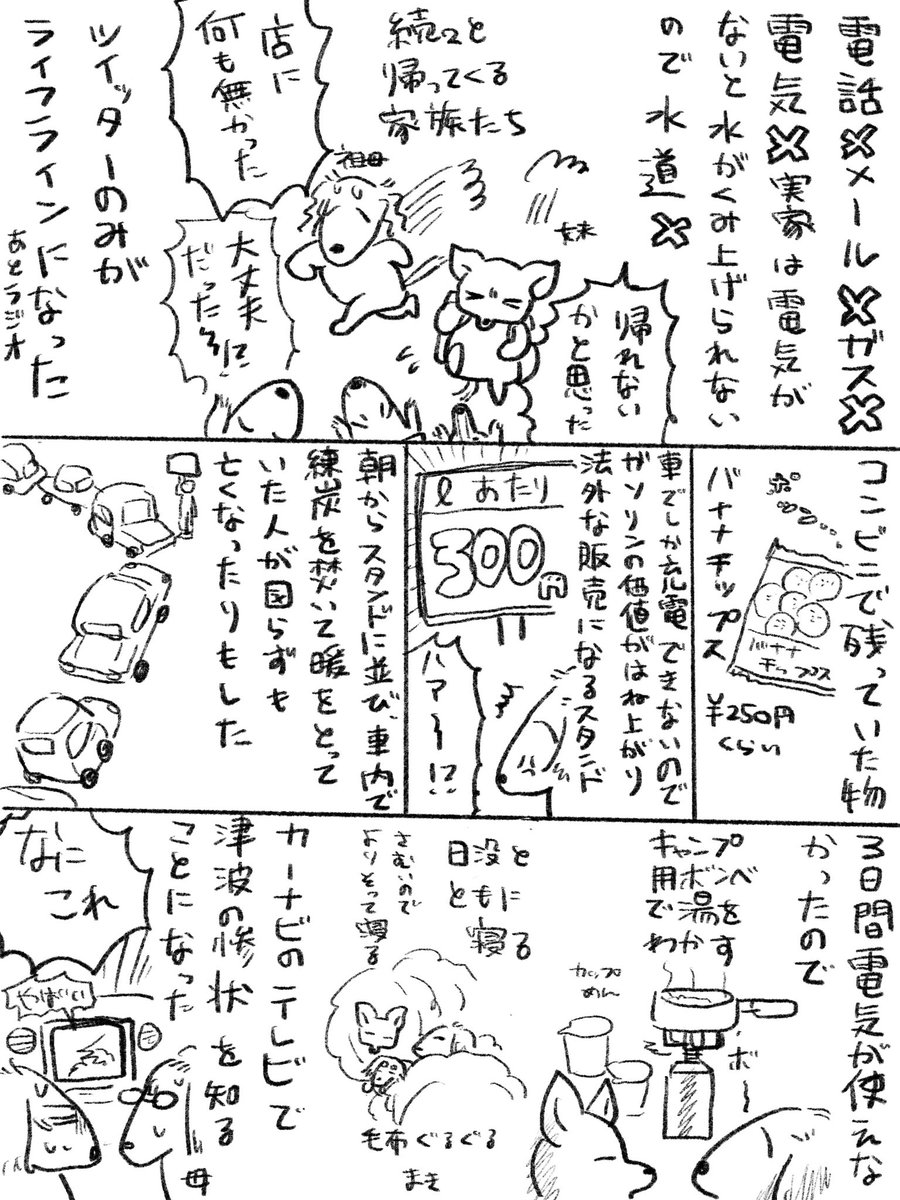 電話✖メール✖ガス✖
電気✖実家は電気が
ないと水がくみ上げられない
ので水道✖
続々と
帰ってくる
家族たち
祖母
妹
帰れない
かと思った
店に
何も無かった
大丈夫
だった!?
ツイッターのみが
ライフラインになった
あとラジオ
コンビニで残っていた物
ポ
バナナ
チップス
バナナチップス
¥250円
くらい
車でしか充電できないので
ガソリンの価値がはね上がり
法外な販売になるスタンド
ℓあたり
300円
ハア〜!?
朝からスタンドに並び、車内で
練炭を焚いて暖をとって
いた人が図らずも
亡くなったりもした
3日間電気が使えな
かったので
キャンプ
用ボンベ
で湯を
わかす
カップ
めん
ボー
日没と
ともに
寝る
さむいので
よりそって寝る
毛布ぐるぐる
まき
カーナビのテレビで
津波の惨状を知る
ことになった
なに
これ
やばい
母